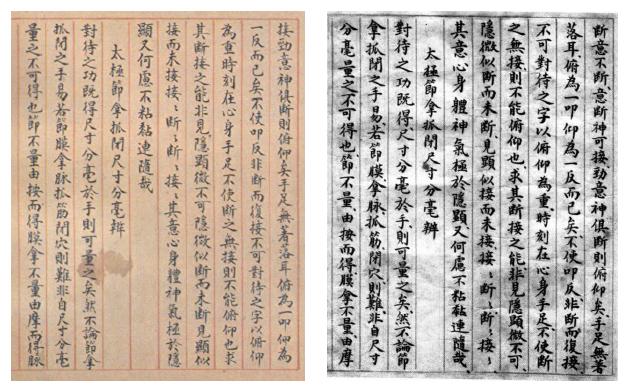 接勁意神俱斷則俯仰矣手足無著落耳俯為一叩仰為
一反而已矣不使叩反非斷而復接不可對待之字以俯仰
為重時刻在心身手足不使斷之無接則不能俯仰也求
其斷接之能非見隱顯微不可隱微似斷而未斷見顯似
接而未接接〻斷〻斷〻接〻其意心身體神氣極於隱
顯又何慮不黏黏連隨哉
太極節拿抓閉尺寸分毫辨
對待之功既得尺寸分毫於手則可量之矣然不論節拿
抓閉之手易若節膜拿脉抓筋閉穴則難非自尺寸分毫
量之不可得也節不量由按而得膜拿不量由摩而得脉
斷意不斷意斷神可接勁意神俱斷則俯仰矣手足無著
落耳俯為一叩仰為一反而已矣不使叩反非斷而復接
不可對待之字以俯仰為重時刻在心身手足不使斷
之無接則不能俯仰也求其斷接之能非見隱顯微不可
隱微似斷而未斷見顯似接而未接接〻斷〻斷〻接〻
其意心身體神氣極於隱顯又何慮不黏黏連隨哉
太極節拿抓閉尺寸分毫辨
對待之功既得尺寸分毫於手則可量之矣然不論節
拿抓閉之手易若節膜拿脉抓筋閉穴則難非自尺寸
分毫量之不可得也節不量由按而得膜拿不量由摩